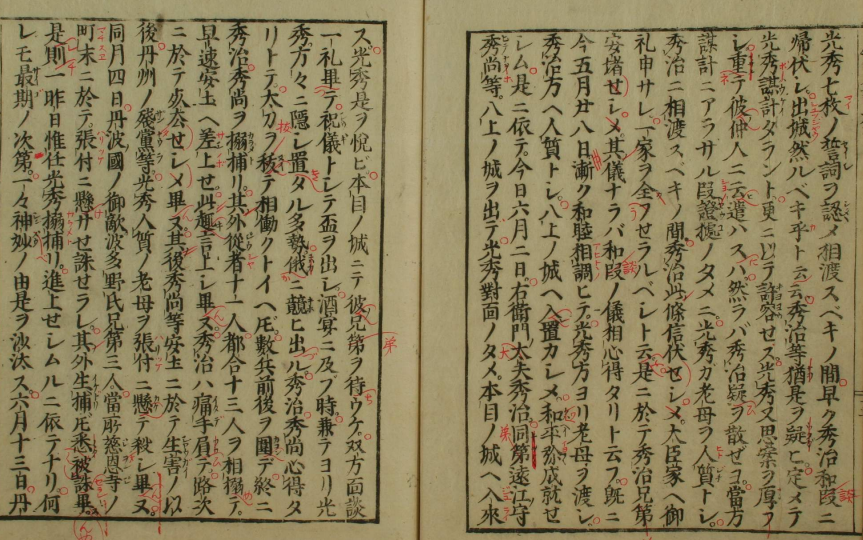 光秀七枚ノ誓詞ヲ認メ相渡スベキノ間早ク秀治和段ニ
帰伏シ出城然ルベキ乎ト云云秀治等猶是ヲ疑ヒ定メテ
光秀謀計タラント更ニ以テ許容セズ光秀又思案ヲ厚フ
シ重テ彼仲人ニ云遣ハスハ然ラバ秀治疑ヲ散ゼヨ當方
謀計ニアラサル段證據ノタメニ光秀カ老母ヲ人質トシ
秀治ニ相渡スベキノ間秀治此條信伏セシメ大臣家ヘ御
礼申サレ一家ヲ全フせラルベシト云是ニ於テ秀治兄第
安堵せシメ其儀ナラバ和段ノ儀相心得タリト云フ既ニ
今五月廿八日漸ク和睦相調ヒテ光秀方ヨリ老母ヲ渡シ
秀治方ヘ人質トシ八上ノ城ヘ入置カシメ和平弥成就せ
シム是ニ依テ今日六月二日右衛門大夫秀治同第遠江守
秀尚等八上ノ城ヲ出テ光秀對面ノタメ本目ノ城ヘ入來
ス光秀是ヲ悦ビ本目ノ城ニテ彼兄第ヲ待ウケ双方面談
一礼畢テ祝儀トシテ盃ヲ出シ酒宴ニ及ブ時兼テヨリ光
秀方々ニ隠シ置タル多勢俄ニ競ヒ出ル秀治秀尚心得タ
リトテ太刀ヲ
テ相働クトイヘ𪜈数兵前後ヲ圍テ終ニ
秀治秀尚ヲ搦捕リ其外從者十一人都合十三人ヲ相搦テ
早速安土ヘ差上せ此趣言上シ畢ヌ秀治ハ痛手負テ路次
ニ於テ死去せシメ畢ヌ其後秀尚等安土ニ於テ生害ノ以
後丹州ノ残黨等光秀人質ノ老母ヲ張付ニ懸テ殺シ畢ヌ
同月四日丹波國ノ御敵波多野氏兄第三人當所慈恩寺ノ
町末ニ於テ張付ニ懸サせ誅せラレ其外生捕𪜈悉被誅畢
是則一昨日惟任光秀搦捕リ進上せシムルニ依テナリ何
レモ最期ノ次第一々神妙ノ由是ヲ沙汰ス六月十三日丹